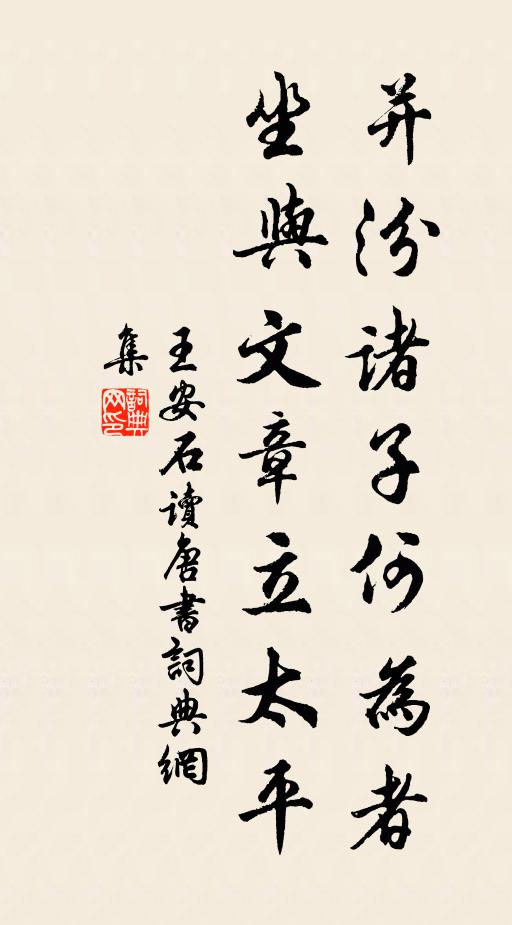 并汾諸子何為者
坐與文章立太平
王安石讀唐書詞典網
集
詞典
網印